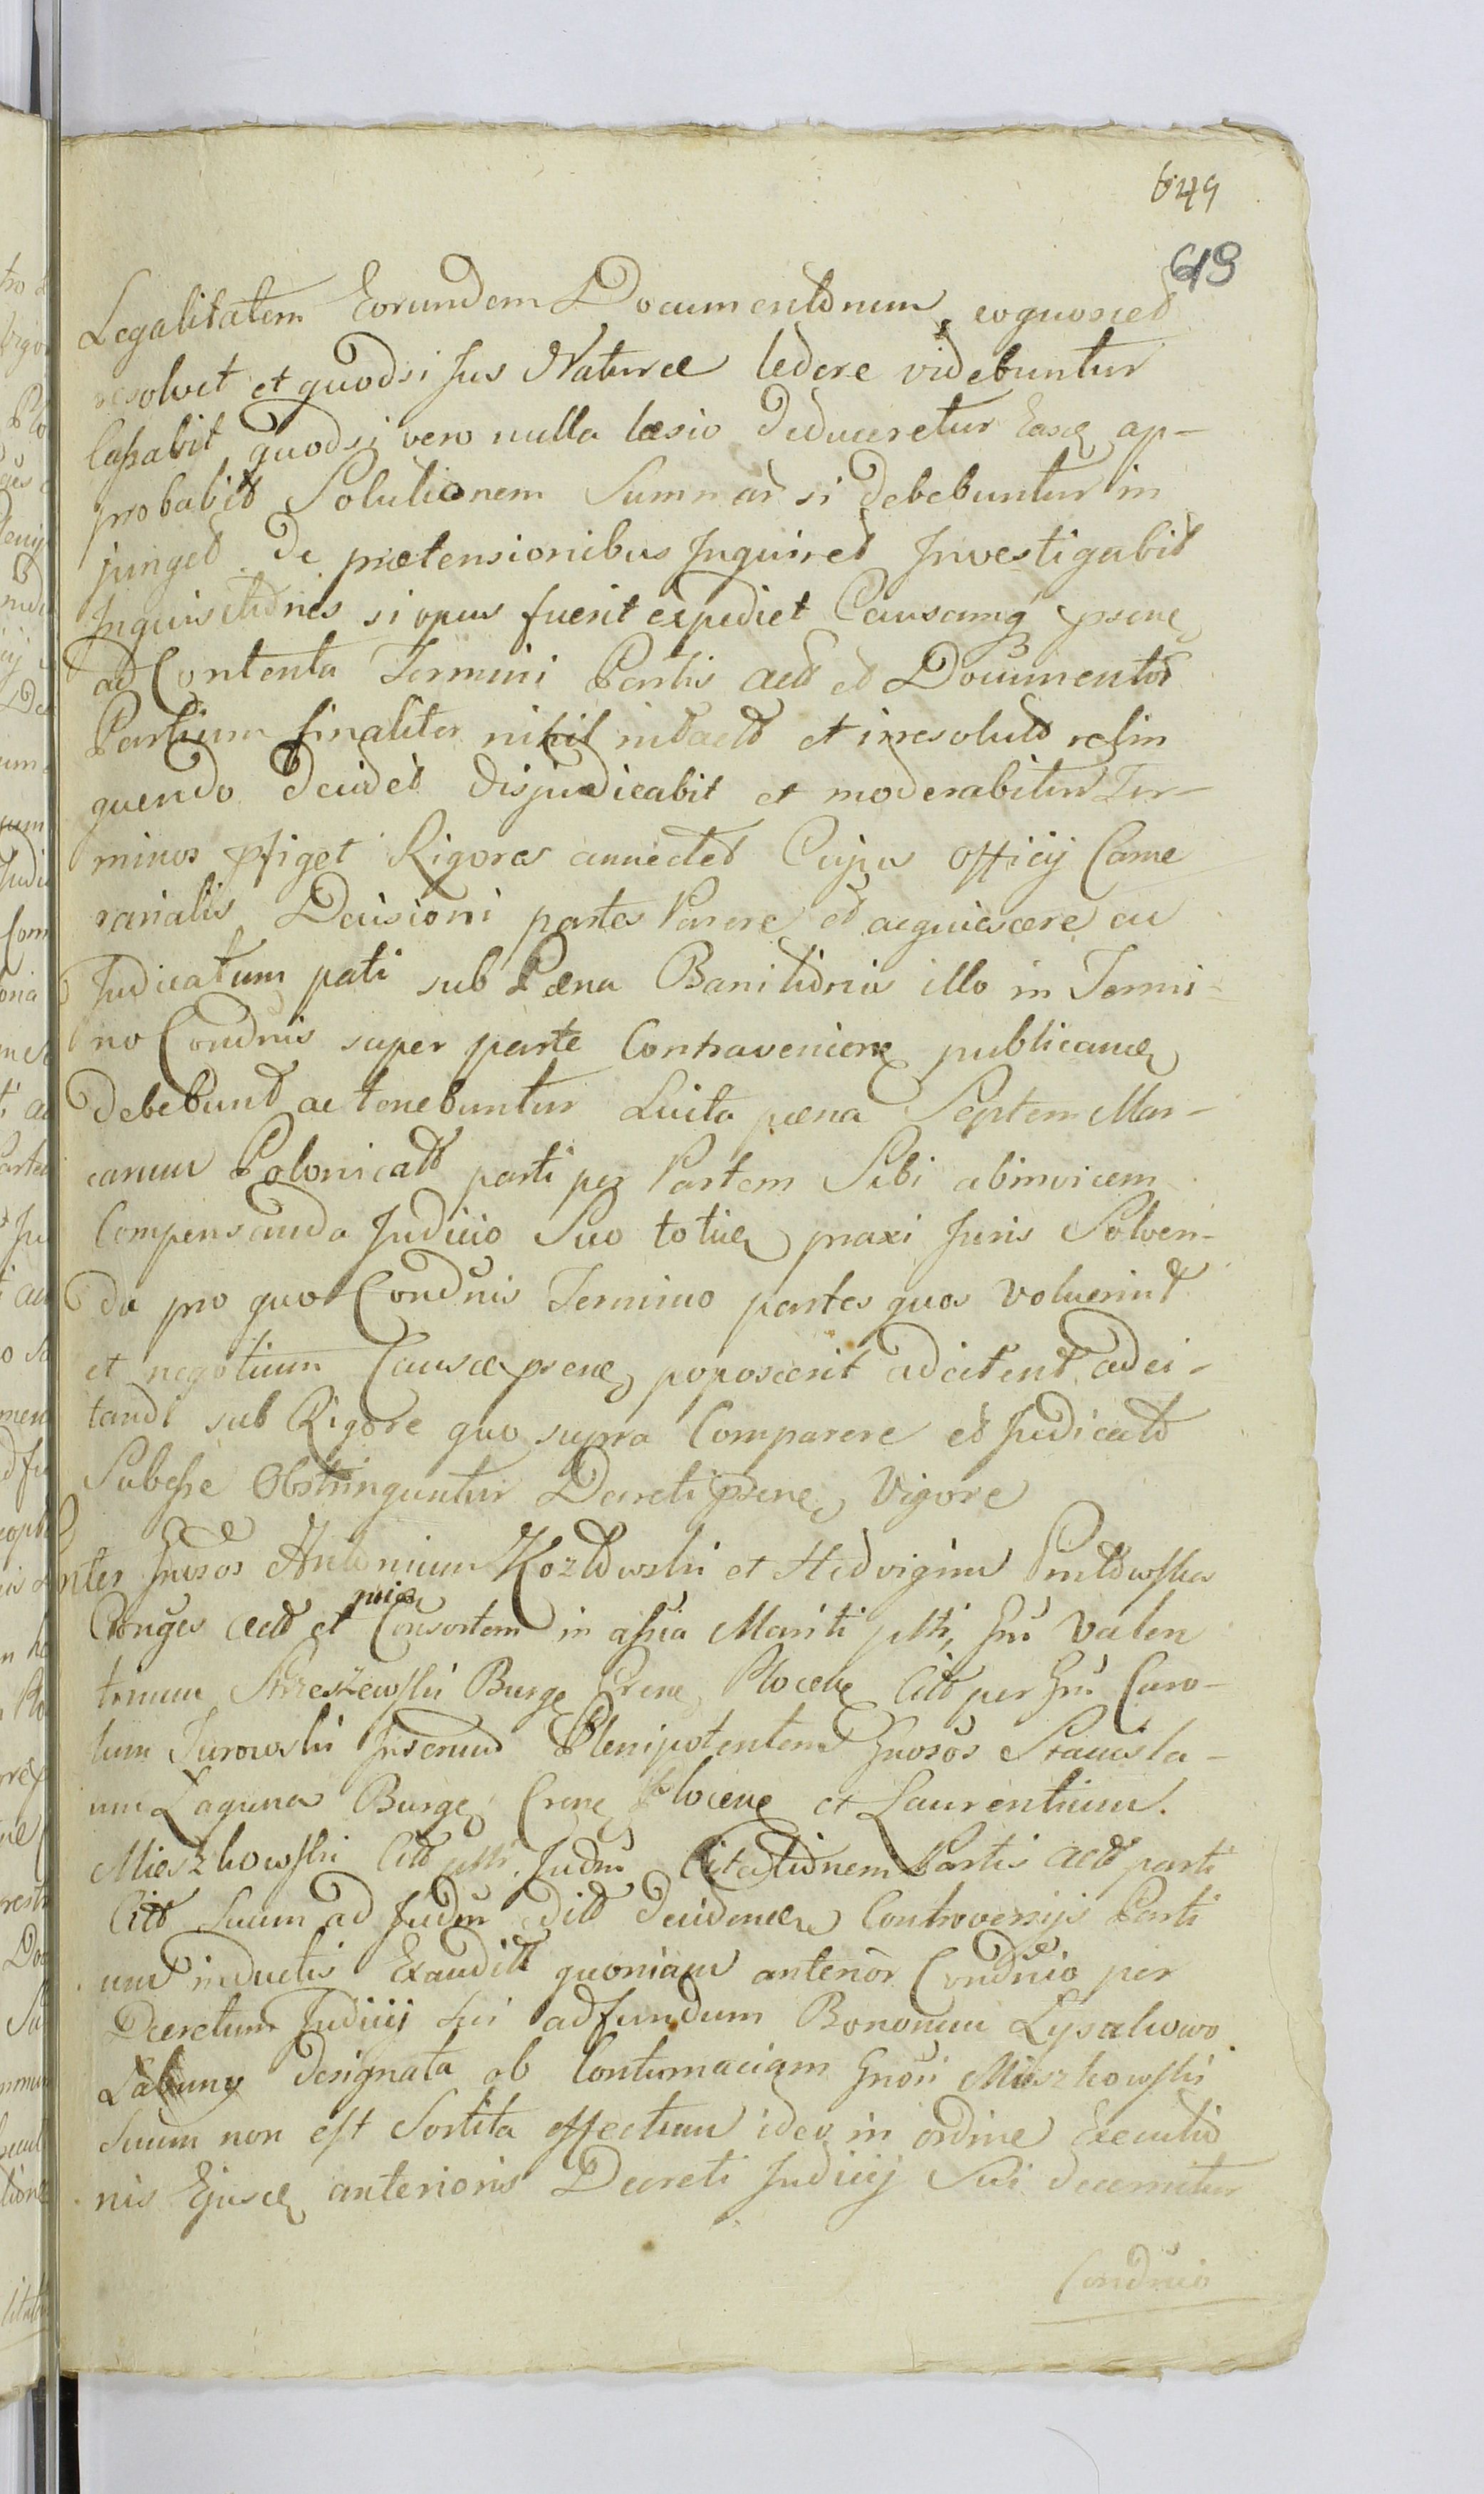 649
619
Legalitatem Eorundem Documentornum cognoscet
resolvet et quodsi Jus Naturæ ledere videbuntur
Cassabit quodsi vero nulla læsio deduceretur Easq ap-
probabit Solutionem Summar si debebuntur in
junget de prætensionibus Inquiret Investigabit
Inquisitiones si opus fuerit expediet Causamq psene
ad Contenta Termini Partis act et Document
Partium finaliter nihil intact et irresolut relin
quendo decidet disjudicabit et moderabitur Ter-
minos pfiget Rigores annectet Cujus officij Came
rarialis Decisioni partes Parere et acquiescere ac
Judicatum pati sub Pæna Banitionis illo in Termi-
no Condnis super parte Contraveniene publicande
debebunt ac tenebuntur Luita pæna Septem Mar-
carum Polonicalt parti per Partem Sibi abinvicem
Compensanda Judicio Suo toties praxi Juris Solven-
da pro quo Condnis Termino partes quos voluerint
et negotium Causæ psene poposcerit adcitent adci-
tandi sub Rigore quo supra Comparere et Judicat
Subesse Obstringuntur Decreti psene Vigore
Inter Gnsos Antonium Kozłowski et Hedvigim
Conges act et Consortem in assia Mariti ptti, Gnu Valen
tinum Strzeszewski Burge Crene Plocene Citt per Gnu Caro-
lum Jurowski Juseruud Plenipotentem Gnosos Stanisla-
um Laguna Burge Crene Plocene et Laurentium.
Mieszkowski Citt ptti. Judm Citationem Partis act parti
Citt Suum ad Judm dit Decidenæ Controversijs Parti
um inductis Exaudit quoniam anterior Condnio per
Decretum Judicij Sui ad fundum Bonorum Łysakowo
Łabuny designata ob Contumaciam Gnosi Mieszkowski
Suum non est Sortita effectum ideo in ordine Executio
nis Ejusd anterioris Decreti Judicij Sui decernitur
Condnio